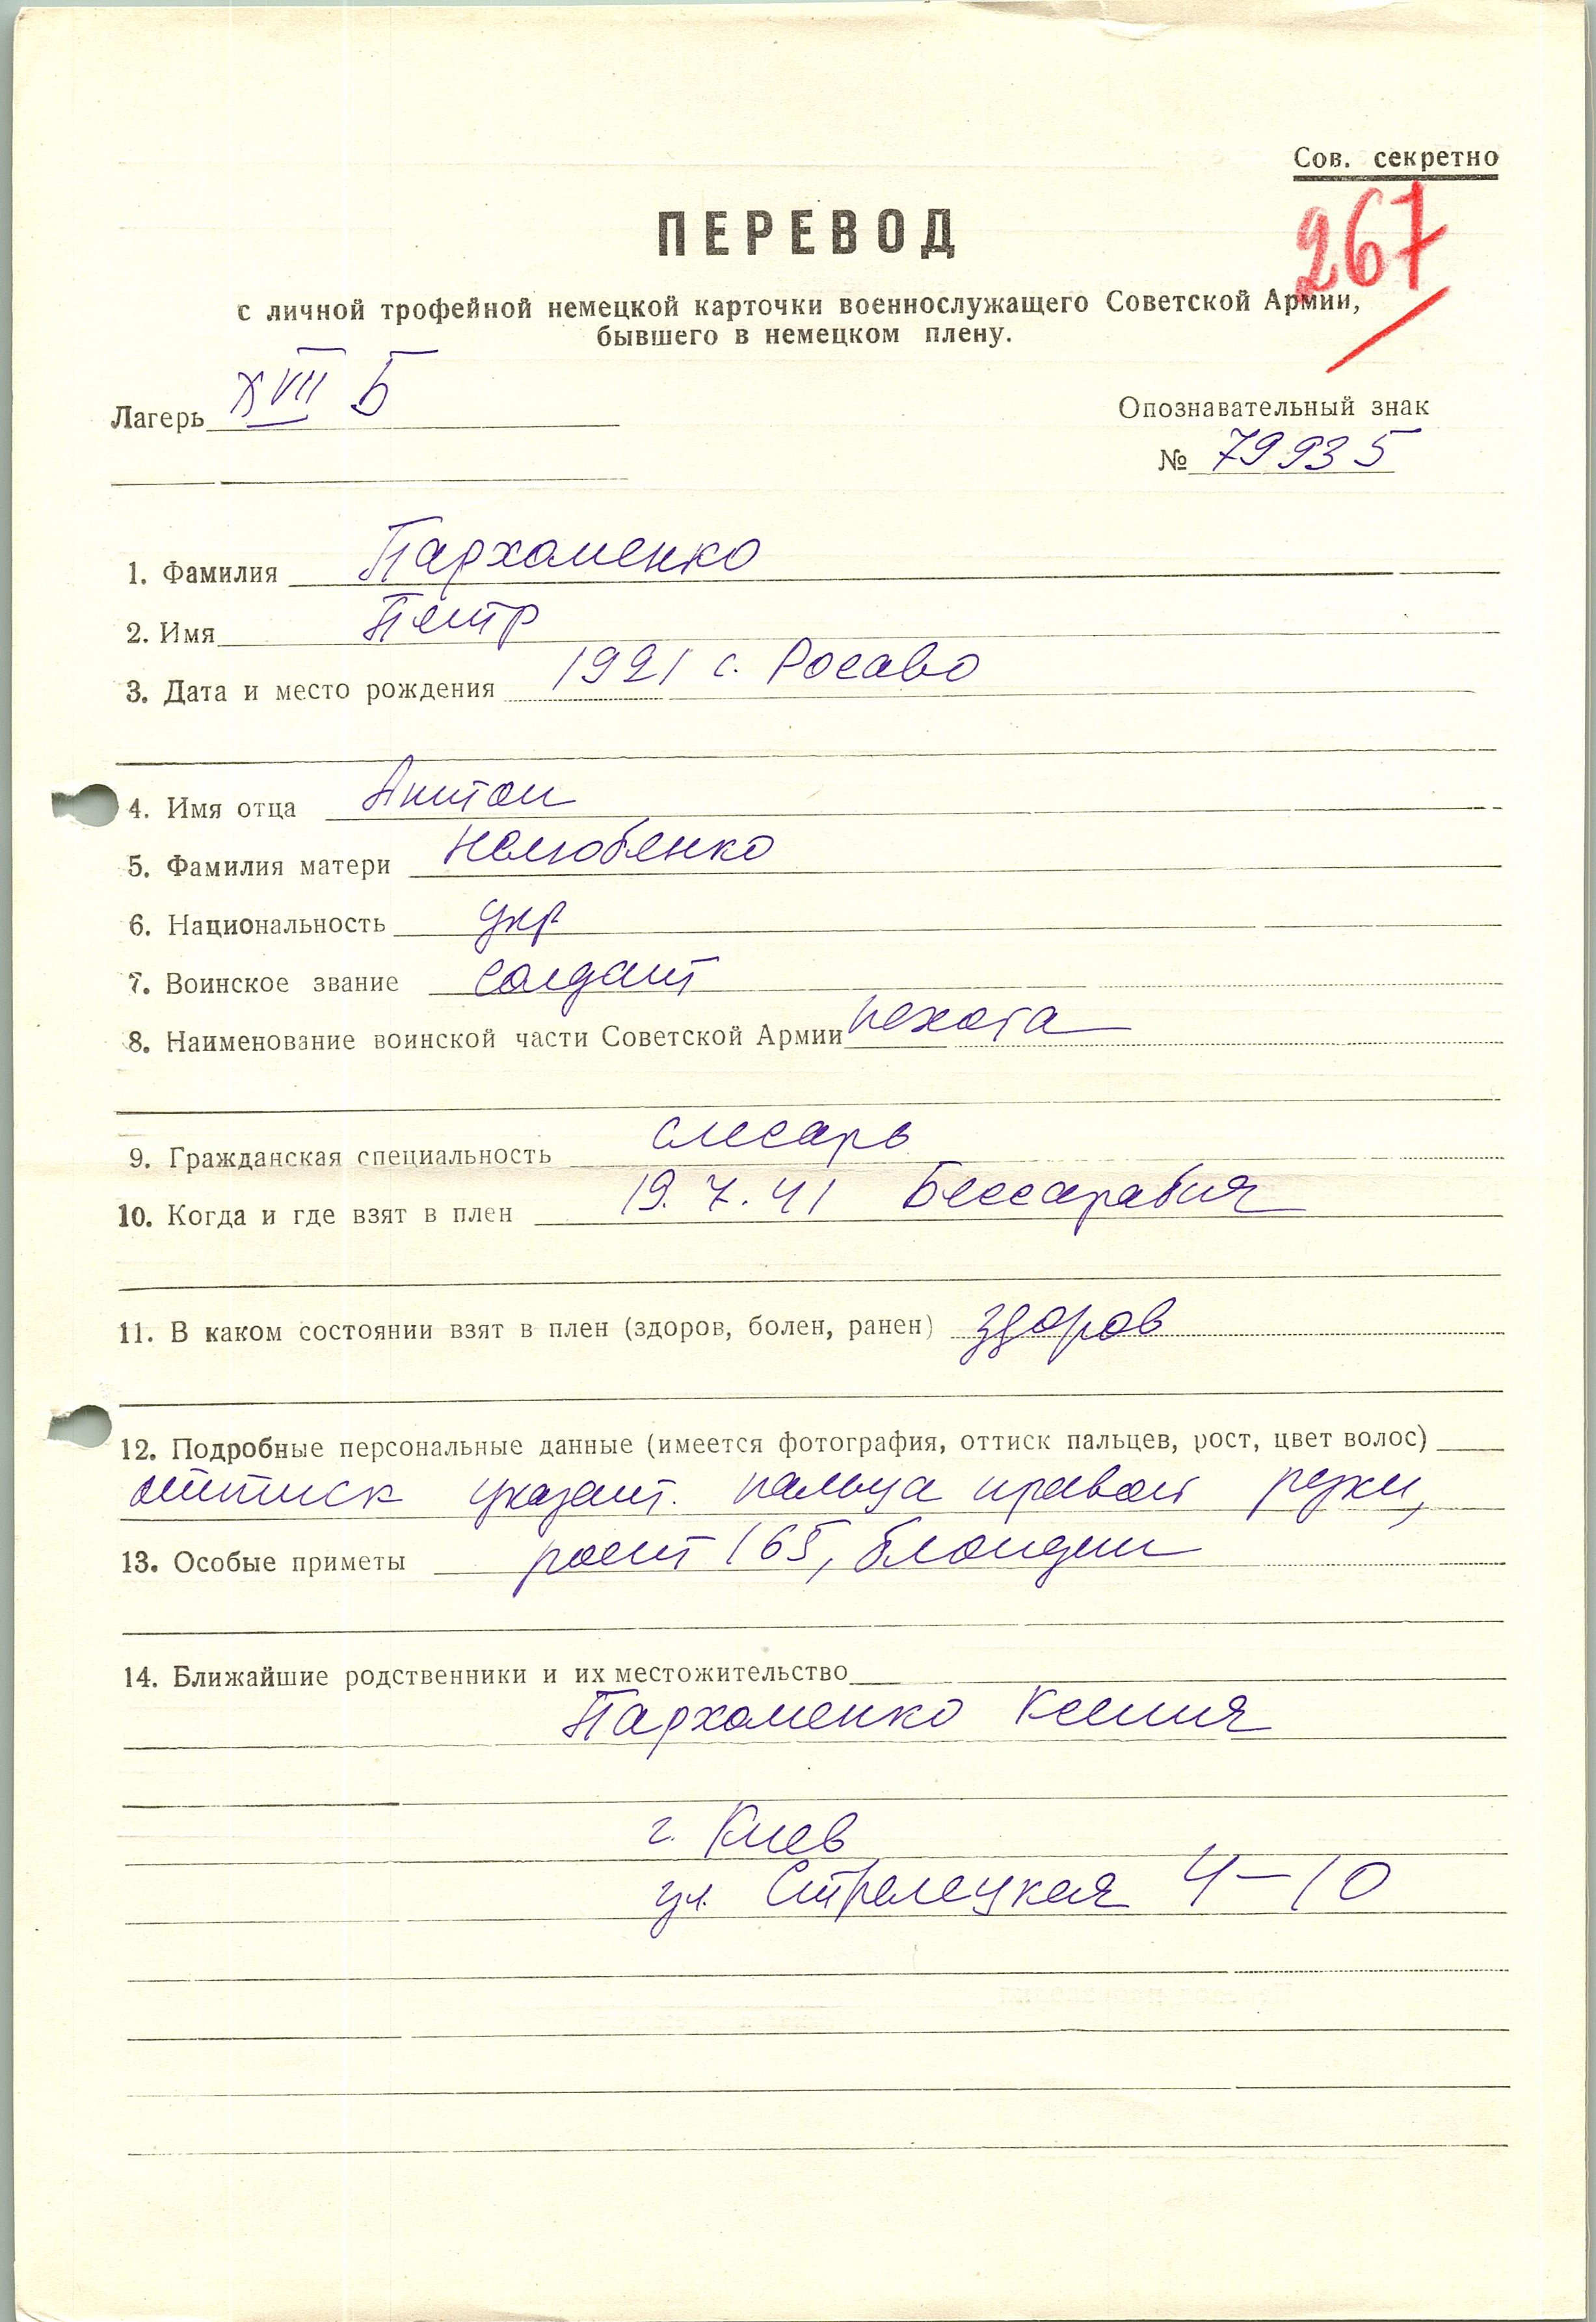 Сов. секретно
267
ПЕРЕВОД
с личной трофейной немецкой карточки военнослужащего Советской Армии,
бывшего в немецком плену.
Лагерь XVII Б
Опознавательный знак
№ 79935
1. Фамилия Пархоменко
2. Имя Петр
3. Дата и место рождения 1921 с. Росаво
4. Имя отца Антон
5. Фамилия матери Нелюбенко
6. Национальность укр
7. Воинское звание солдат
8. Наименование воинской части Советской Армии пехота
9. Гражданская специальность слесарь
10. Когда и где взят в плен 19.7.41 Бессарабия
11. В каком состоянии взят в плен (здоров, болен, ранен) здоров
12. Подробные персональные данные (имеется фотография, оттиск пальцев, рост, цвет волос)
оттиск указат. пальца правой руки,
13. Особые приметы рост 165, блондин
14. Ближайшие родственники и их местожительство
Пархоменко Ксения
г. Киев
ул. Стрелецкая 4-10